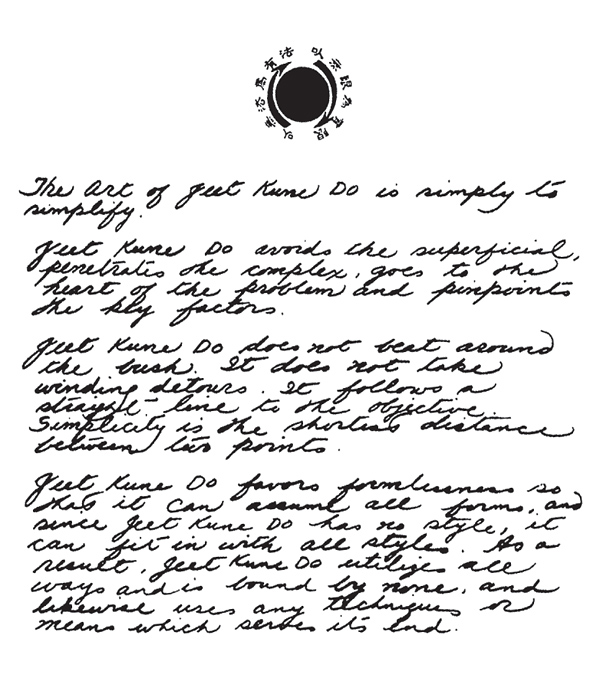 以無法為有法 以無限為有限
The Art of Jeet Kune Do is simply to
simplify.
Jeet Kune Do avoids the superficial,
penetrates the complex, goes to the
heart of the problem and pinpoints
the key factors.
Jeet Kune Do does not beat around
the bush. It does not take
winding detours. It follows a
straight line to the objective.
Simplicity is the shortest distance
between two points.
Jeet Kune Do favors formlessness so
that it can assume all forms, and
since Jeet Kune Do has no style, it
can fit in with all styles. As a
result, Jeet Kune Do utilizes all
ways and is bound by none, and
likewise uses any techniques or
means which serves its end.